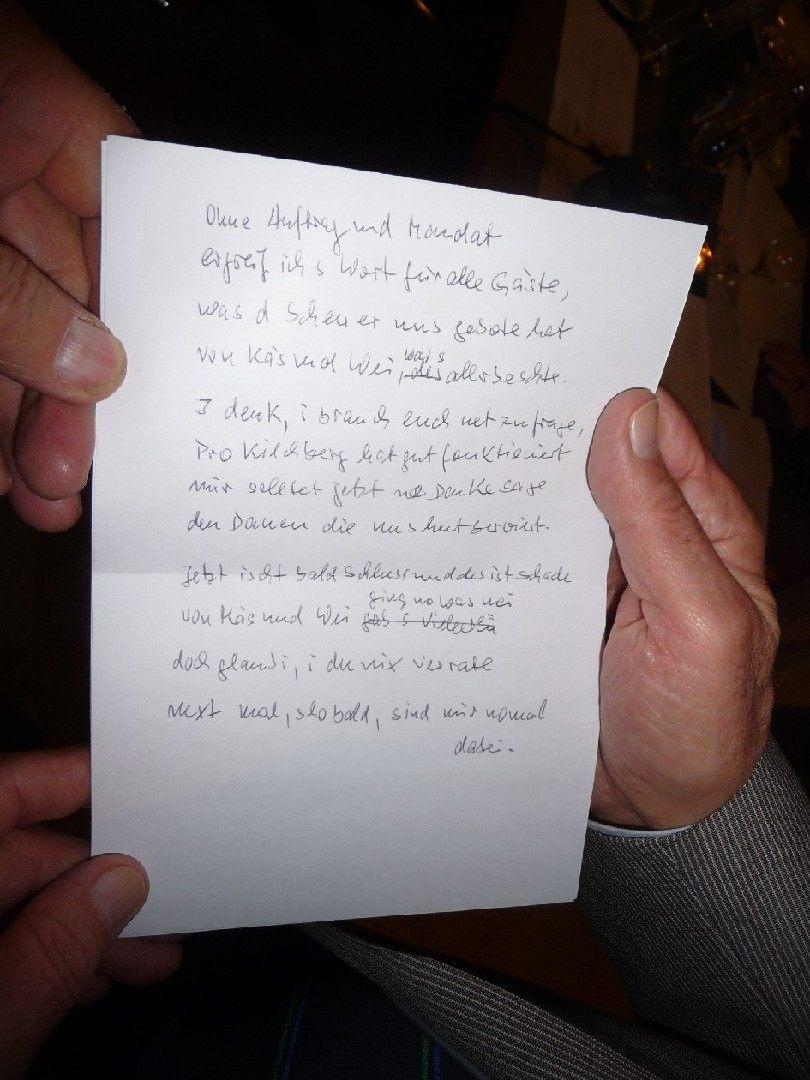 Ohne Auftrag und Mandat
ergreif ich s Wort für alle Gäste,
was d Scheuer uns gebote hat
von Käs und Wei, war's allerbeschte.
I denk, i brauch euch net zu frage,
Pro Kilchberg hat gut funktioniert
mir sollet jetzt no Danke sage
den Damen die uns heut serviert.
jetzt ischt bald Schluss und des ist schade
von Käs und Wei ging no was nei
doch glaub i, i du nix verrate
next mal, sko bald, sind mir nomal
dabei.